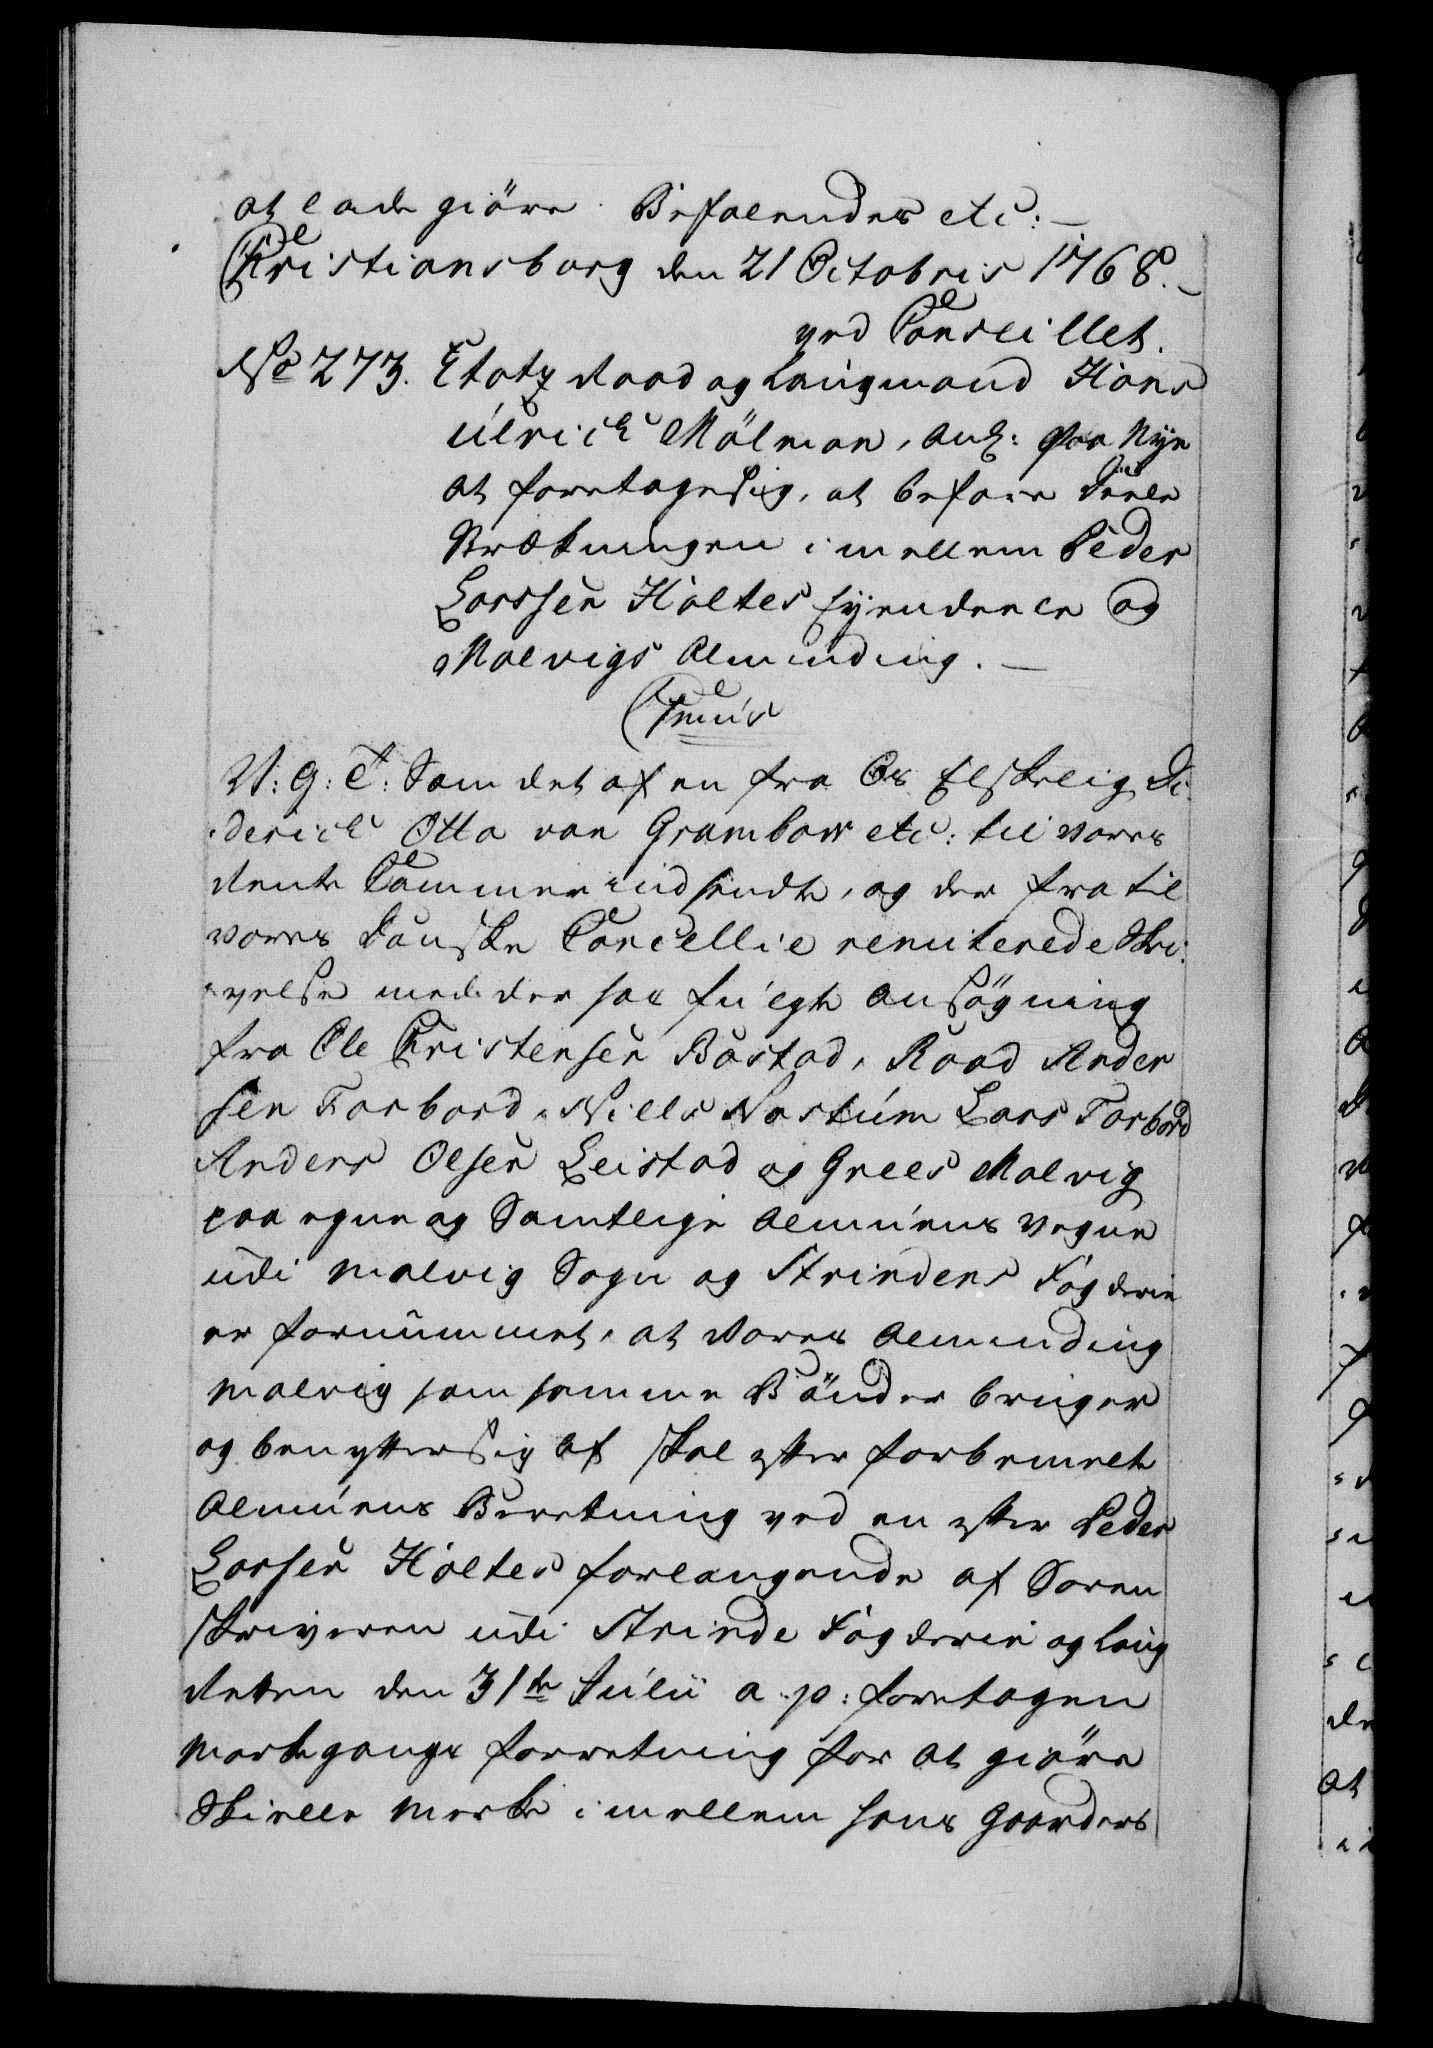 at lade giöre. Befalendes etc:
Christiansborg den 21 Octobris 1768.
ved Conseillet.
No 273. Etatz Raad og Laugmand Hans
Ulrich Mölman, ang: paa Nye
at foretage sig, at befare Deele
Strækningen imellem Peder
Larssen Holtes Eyendeele og
Malvigs Alminding.
C7mus
V: G: T: Som det af en fra Os Elskelig Di
derich Otto von Grambow etc: til vores
Rente Cammer indsendte, og der fra til
vores Danske Cancellie remitterede Skri
velse med der hos fulgte Ansögning
fra Ole Christensen Bostad, Road Ander
sen Forbord, Niells Nostum Lars Forbord
Anders Olsen Leistad og Grees Malvig
paa egne og Samtlige Almuens vegne
udi Malvig Sogn og Strindens Fogderie
er fornummet, at Vores Alminding
Malvig som samme Bönder bruger
og benytter sig af skal efter forbemelte
Almuens Beretning ved en efter Peder
Larsen Holtes forlangende af Soren
skriveren udi Strinde Fogderie og Laug
Retten den 31te Julii a. p: foretagen
Markegangs forretning for at giöre
Skielle Merke imellem hans Gaarders